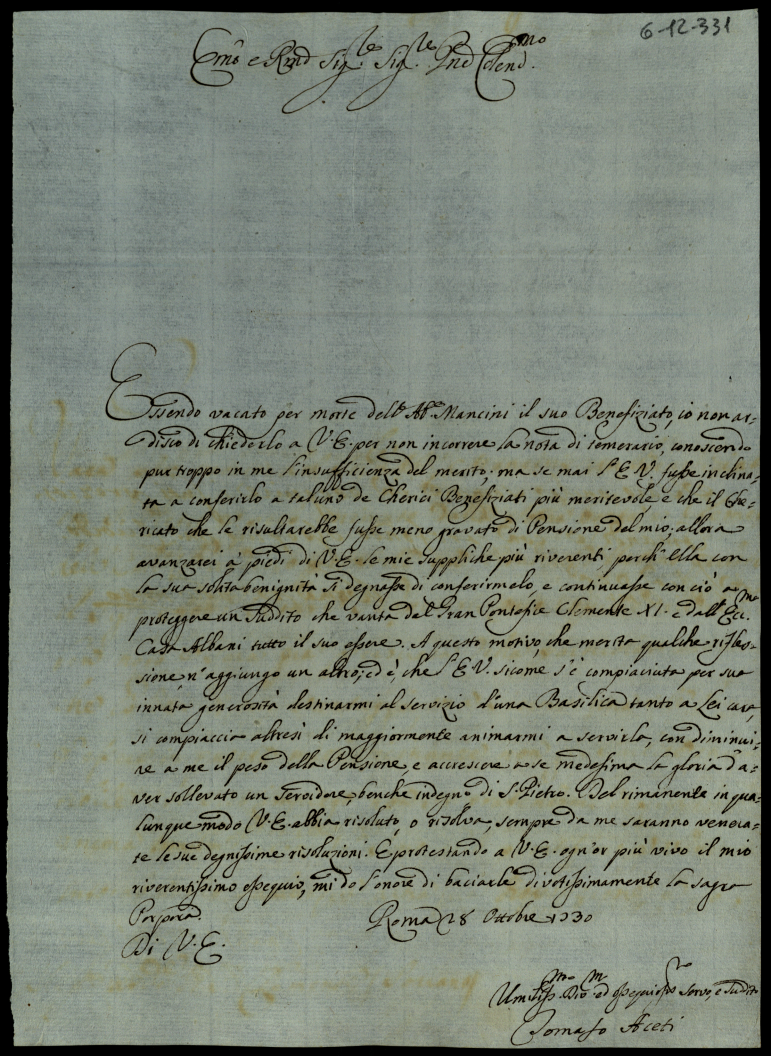 6-12-331
Emo e Rmo Sig.re Sig.re Pne Colend.mo
Essendo vacato per morte dell'Ab.e Mancini il suo Benefiziato, io non ar-
disco di chiederlo a V.E. per non incorrere la nota di temerario, conoscendo
pur troppo in me l'insufficienza del merito; ma se mai l'E.V. fusse inclina-
ta a conferirlo a taluno de Cherici Benefiziati più meritevole, e che il Che-
ricato che le risultarebbe fusse meno gravato di Pensione del mio; allora
avanzarei a' piedi di V.E. le mie suppliche più riverenti perch'Ella con
la sua solita benignità si degnasse di conferirmelo, e continuasse con ciò a
proteggere un Suddito che vanta dal Gran Pontefice Clemente XI. e dall'Ecc.ma
Casa Albani tutto il suo essere. A questo motivo, che merita qualche rifles-
sione, n'aggiungo un altro; ed è, che l'E.V. sicome s'è compiaciuta per sua
innata generosità destinarmi al servizio d'una Basilica tanto a Lei cara,
si compiaccia altresì di maggiormente animarmi a servirla, con diminui-
re a me il peso della Pensione, e accrescere a se medesima la gloria d'a-
ver sollevato un Servidore, benche indegno di S. Pietro. Del rimanente in qua-
lunque modo V.E. abbia risoluto, o risolva, sempre da me saranno venera-
te le sue degnissime risoluzioni. E protestando a V.E. ogn'or più vivo il mio
riverentissimo ossequio, mi do l'onore di baciarle divotissimamente la sagra
Porpora.
Roma 28 Ottobre 1730
Di V.E.
Umiliss.mo Dio.mo ed ossequios.mo Servo, e Suddito
Tomaso Aceti